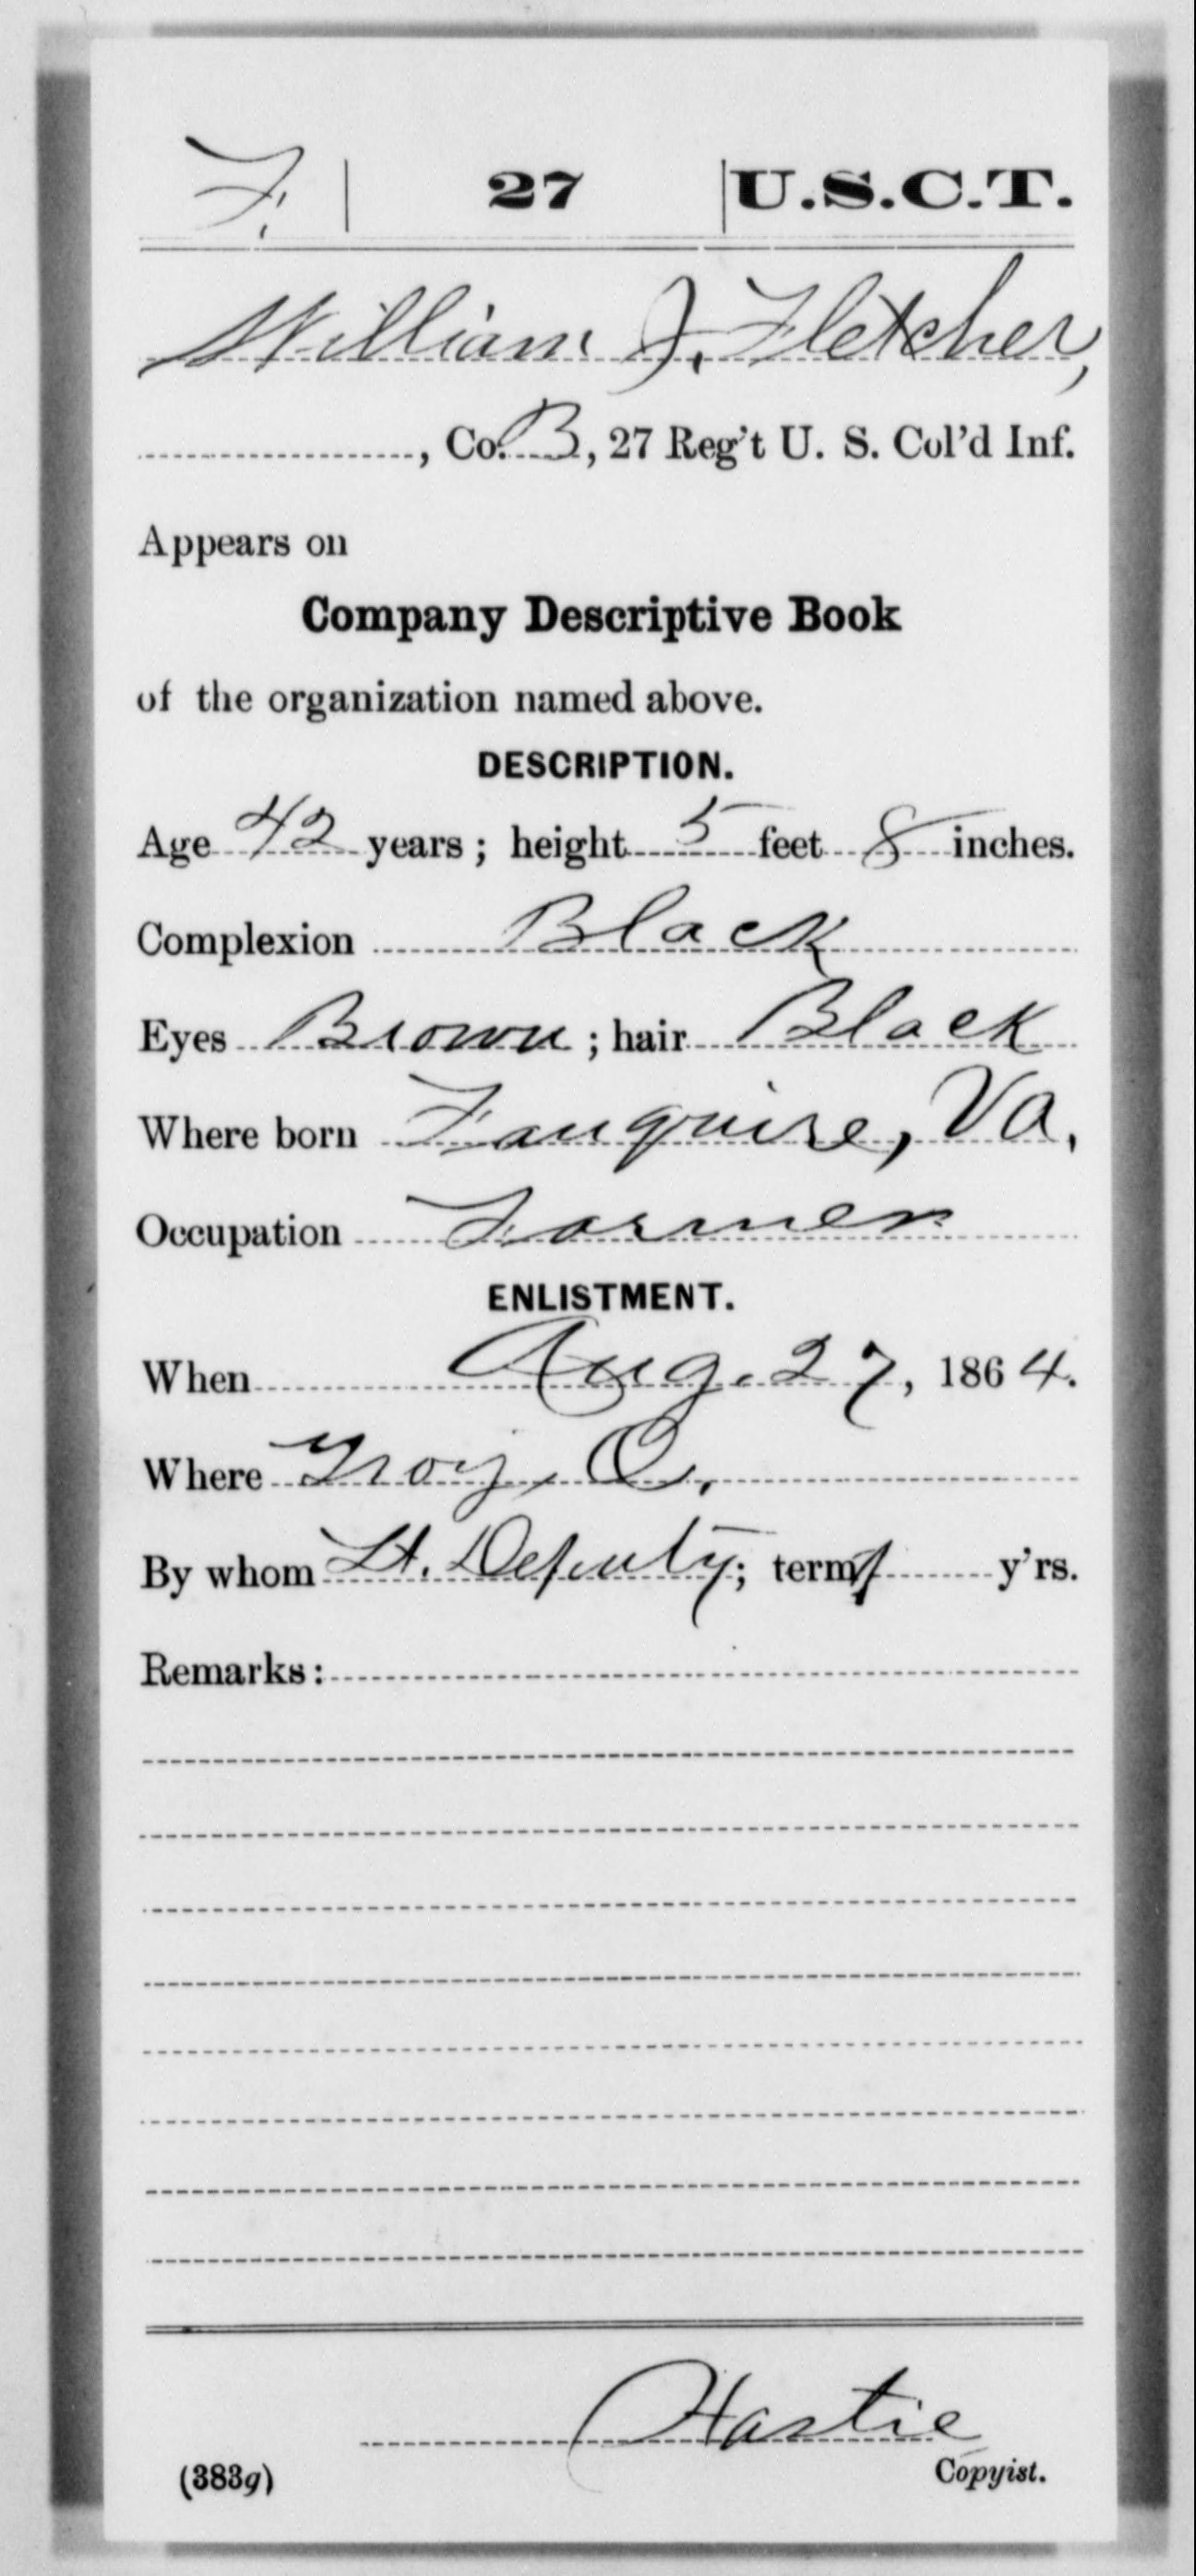 F. | 27 | U.S.C.T.
William J. Fletcher,
, Co. B, 27 Reg't U. S. Col'd Inf.
Appears on
Company Descriptive Book
of the organization named above.
DESCRIPTION.
Age 42 years; height 5 feet 8 inches.
Complexion Black
Eyes Brown; hair Black
Where born Fauquire, Va.
Occupation Farmer
ENLISTMENT.
When Aug. 27, 1864.
Where Troy, O.
By whom Lt. Deputy; term 1 y'rs.
Remarks:
Hastie
(383g) Copyist.